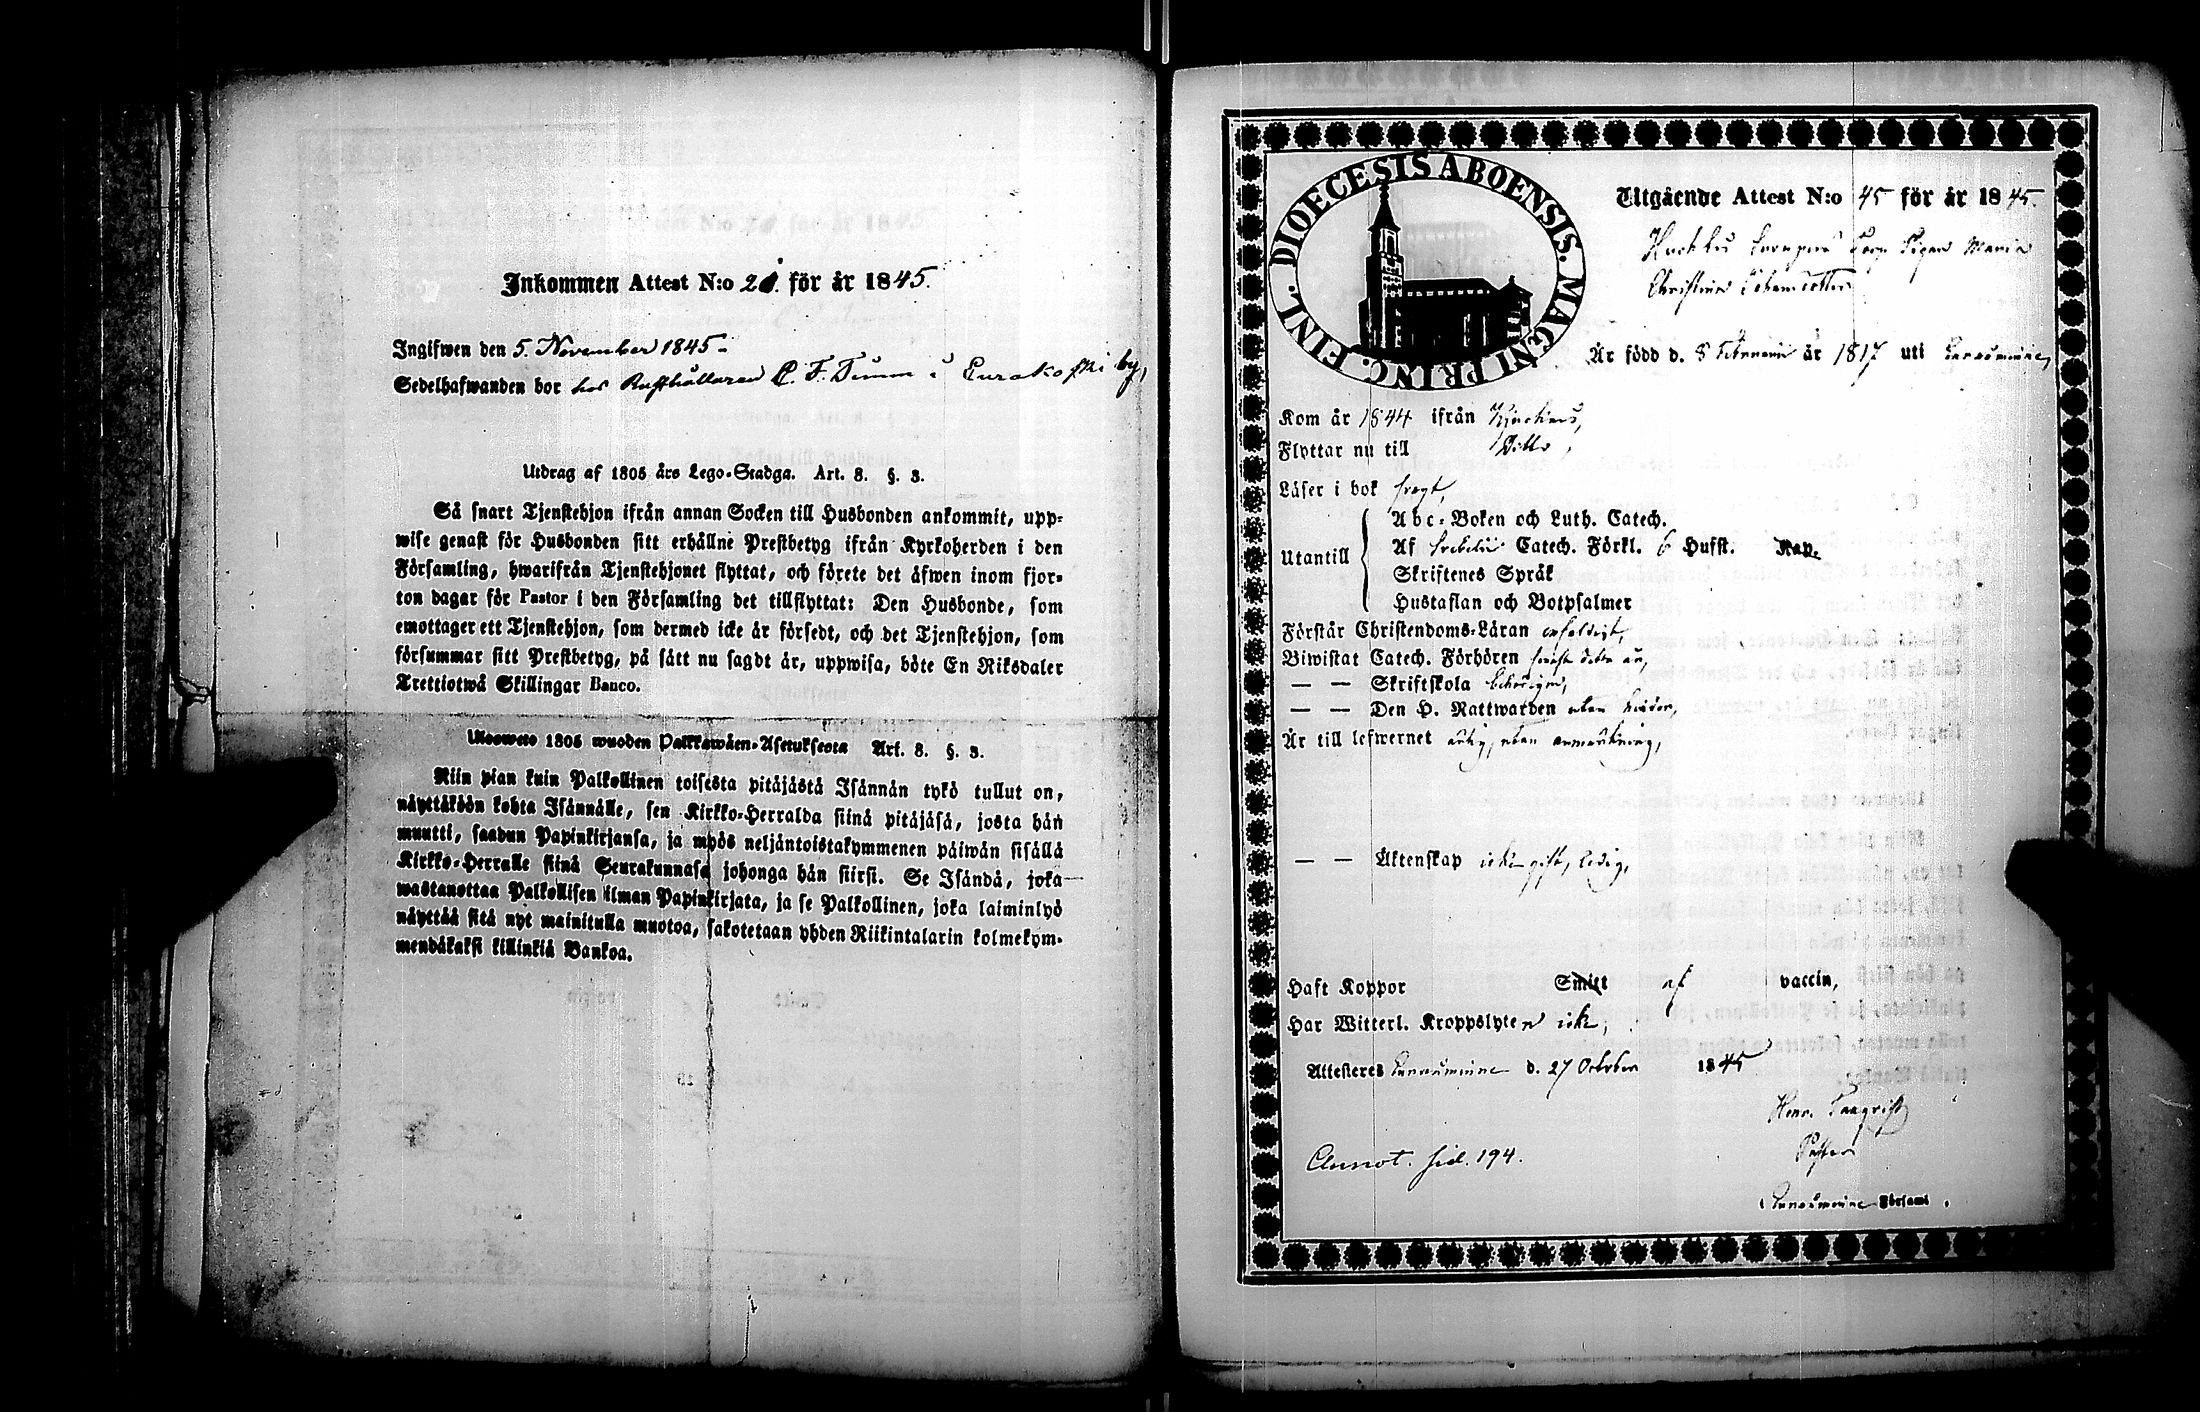 Inkommen Attest N:o 21. för år 1845.
Ingifwen den 5. November 1845.
Sedelhafwanden bor hos Rusthållaren C. F. Timm i Eurakoski by,
Utdrag af 1805 års Lego-Stadga. Art. 8. §. 3.
Så snart Tjenstehjon ifrån annan Socken till Husbonden ankommit, upp-
wise genast för Husbonden sitt erhållne Prestbetyg ifrån Kyrkoherden i den
Församling, hwarifrån Tjenstehjonet flyttat, och förete det äfwen inom fjor-
ton dagar för Pastor i den Församling det tillflyttat: Den Husbonde, som
emottager ett Tjenstehjon, som dermed icke är försedt, och det Tjenstehjon, som
försummar sitt Prestbetyg, på sätt nu sagdt är, uppwisa, böte En Riksdaler
Trettiotwå Skillingar Banco.
Ulosweto 1805 wuoden Palkkawäen-Asetuksesta Art. 8. §. 3.
Niin pian kuin Palkollinen toisesta pitäjästä Isännän tykö tullut on,
näyttäköön kohta Isännälle, sen Kirkko-Herralda siinä pitäjäsä, josta hän
muutti, saadun Papinkirjansa, ja myös neljäntoistakymmenen päiwän sisällä
Kirkko-Herralle siinä Seurakunnasa johonga hän siirsi. Se Isändä, joka
wastanottaa Palkollisen ilman Papinkirjata, ja se Palkollinen, joka laiminlyö
näyttää sitä nyt mainitulla muotoa, sakotetaan yhden Riikintalarin kolmekym-
mendäkaksi killinkiä Bankoa.
DIOECESIS ABOENSIS. MAGNI PRINC. FINL.
Utgående Attest N:o 45 för år 1845.
Pigan Maria
Christina Johansdotter
Är född d. 8 Februarii år 1817 uti Lannäminne,
Kom år 1844 ifrån
Flyttar nu till Ditto,
Läser i bok trögt,
Utantill
Abc-Boken och Luth. Catech.
Af Svebelii Catech. Förkl. 6 Hufst. Kap.
Skriftenes Språk
Hustaflan och Botpsalmer
Förstår Christendoms-Läran enfaldigt,
Biwistat Catech. Förhören
— — Skriftskola behörigen,
— — Den H. Nattwarden utan hinder,
Är till lefwernet ärlig, utan anmärkning,
— — Äktenskap icke gift, ledig,
Haft Koppor Smitt af vaccin,
Har Witterl. Kroppslyten icke,
Attesteras d. 27 October 1845
Henr.
Pastor
Annot. sid. 194.
Församl.